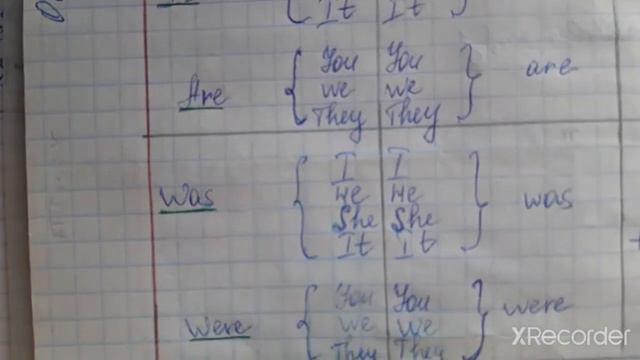 It It
Are { You You } are
we we
They They
Was { I I } was
He He
She She
It It
Were { You You } were
we we
They They
XRecorder